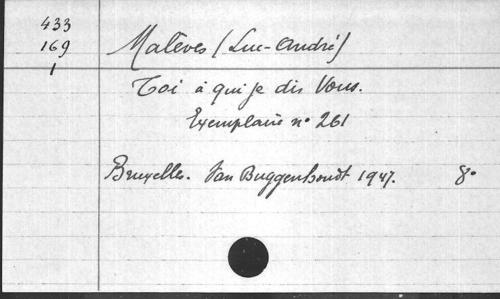 433
169
1
Malèves (Luc-André)
Toi à qui je dis Vous.
Exemplaire n° 261
Bruxelles. Van Buggenhoudt 1947. 8°